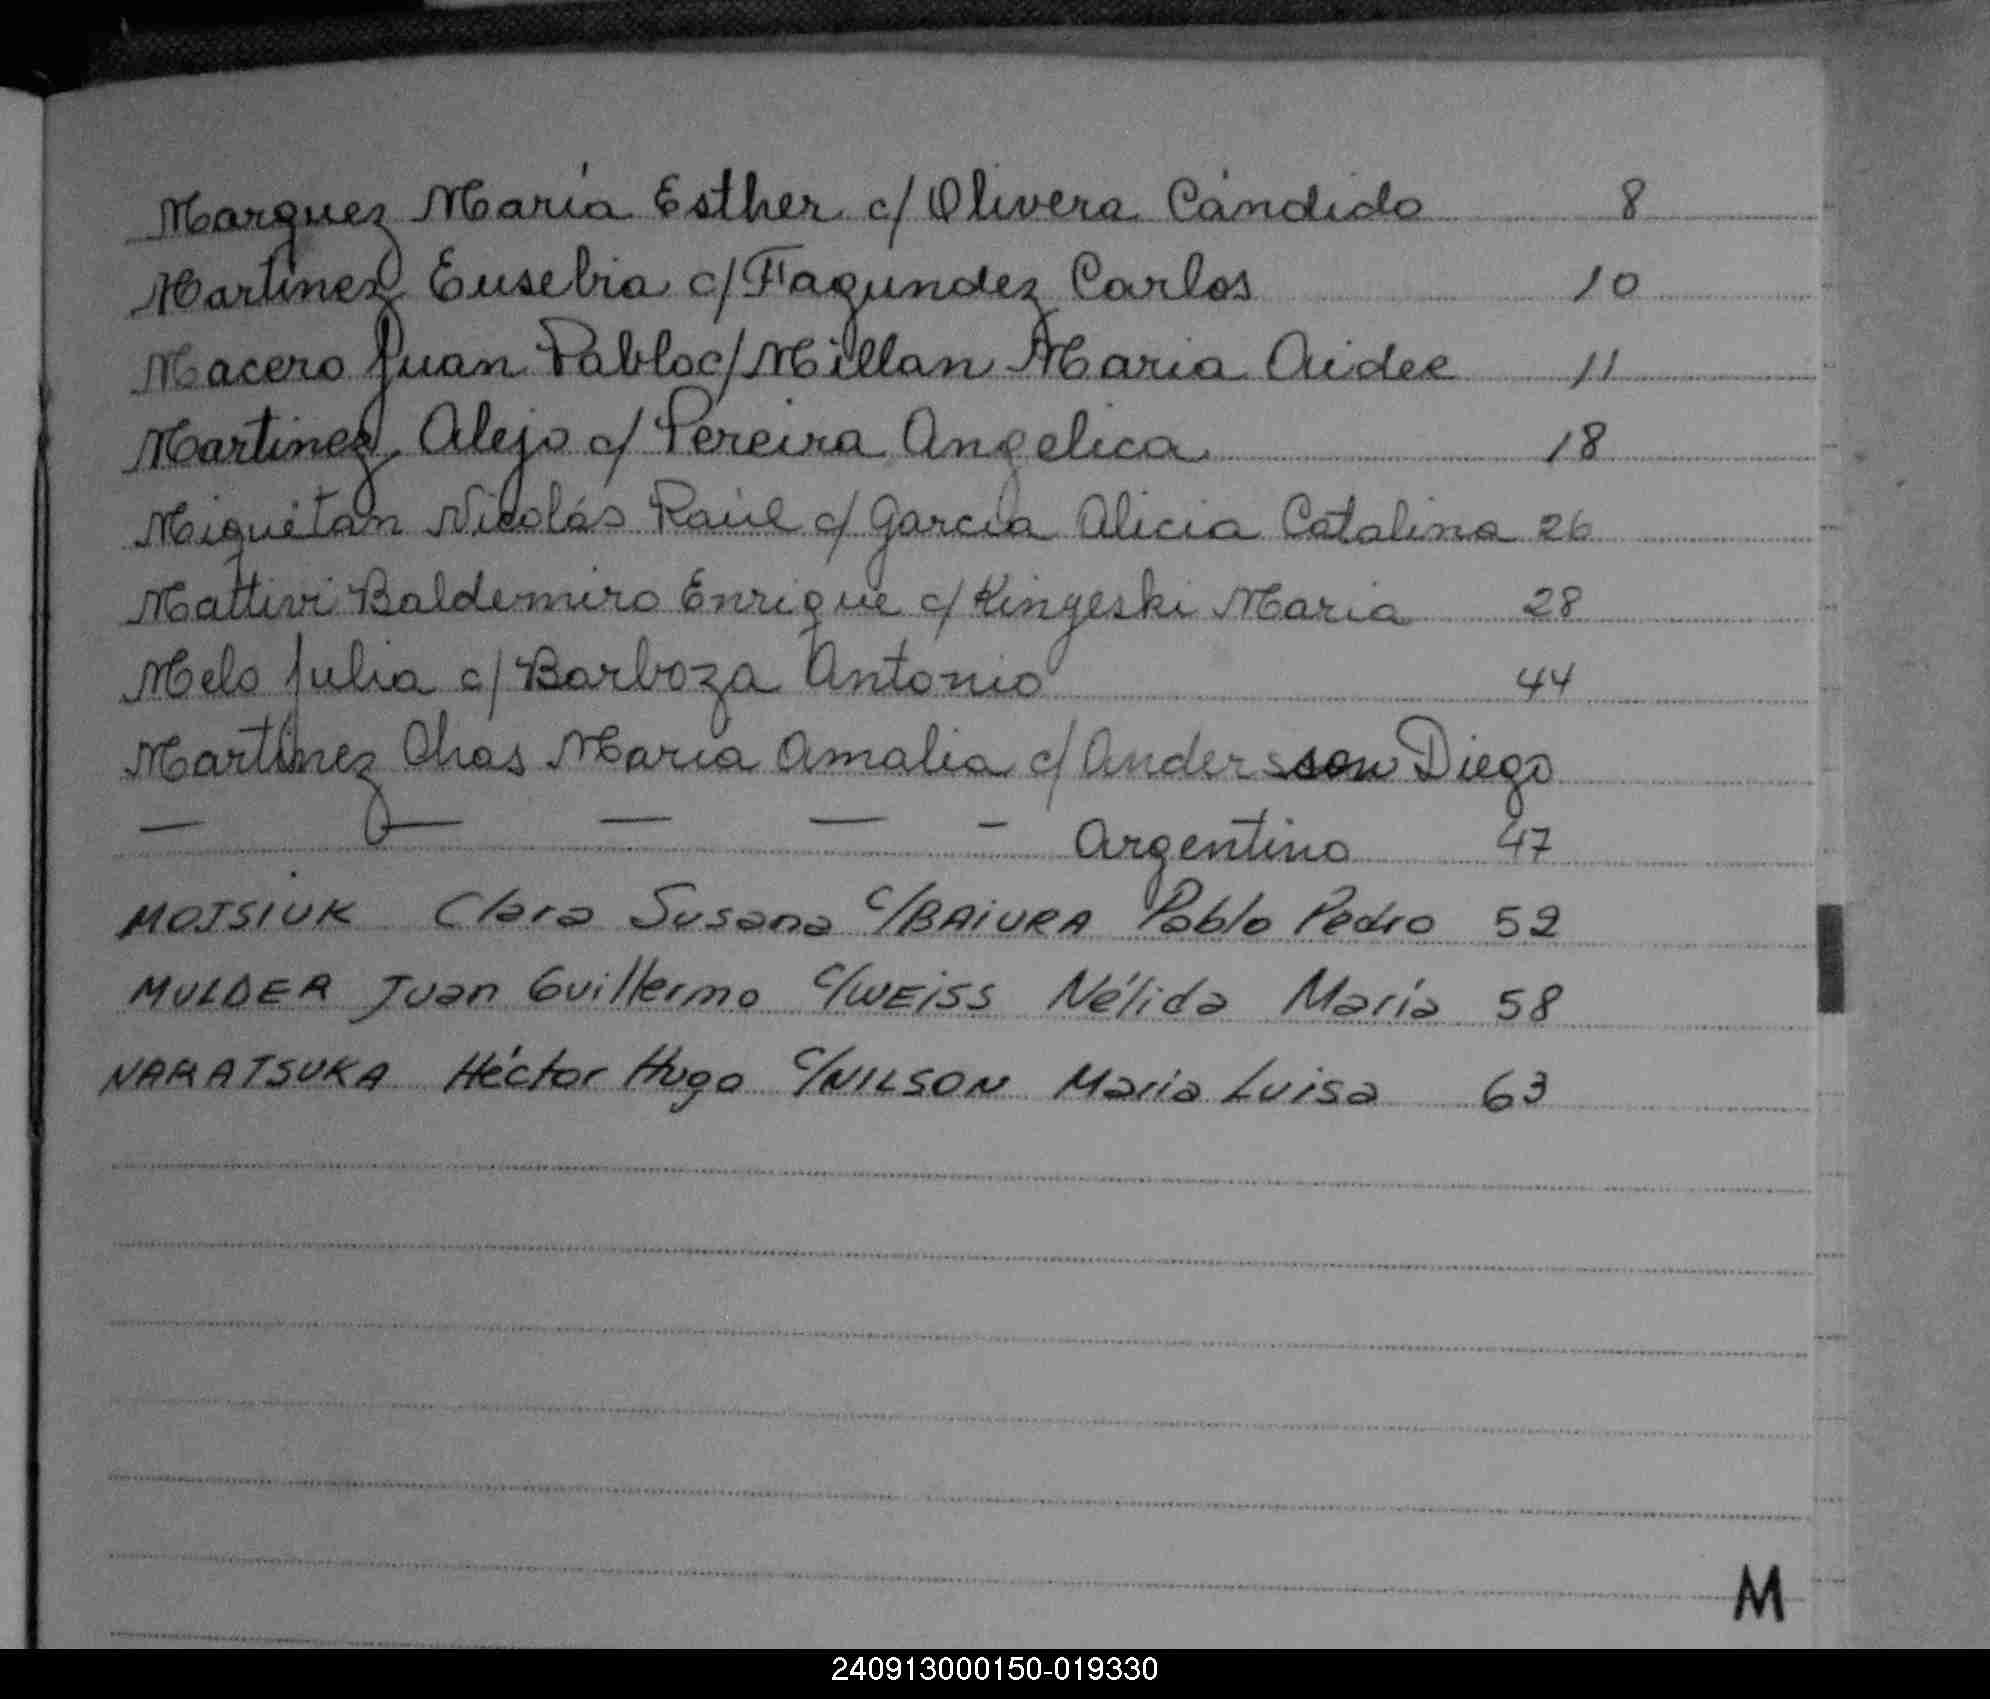 Marquez María Esther c/ Olivera Cándido 8
Martinez Eusebia c/ Fagundez Carlos 10
Macero Juan Pablo c/ Millan Maria Aidee 11
Martinez Alejo c/ Pereira Angelica 18
Miquétan Nicolás Raúl c/ Garcia Alicia Catalina 26
Mattivi Baldemiro Enrique c/ Kingeski Maria 28
Melo Julia c/ Barboza Antonio 44
Martinez Chas Maria Amalia c/ Andersson Diego
— — — — - Argentino 47
MOJSIUK Clara Susana c/ BAIURA Pablo Pedro 52
MULDER Juan Guillermo c/ WEISS Nélida María 58
Héctor Hugo c/ NILSON Maria Luisa 63
M
240913000150-019330